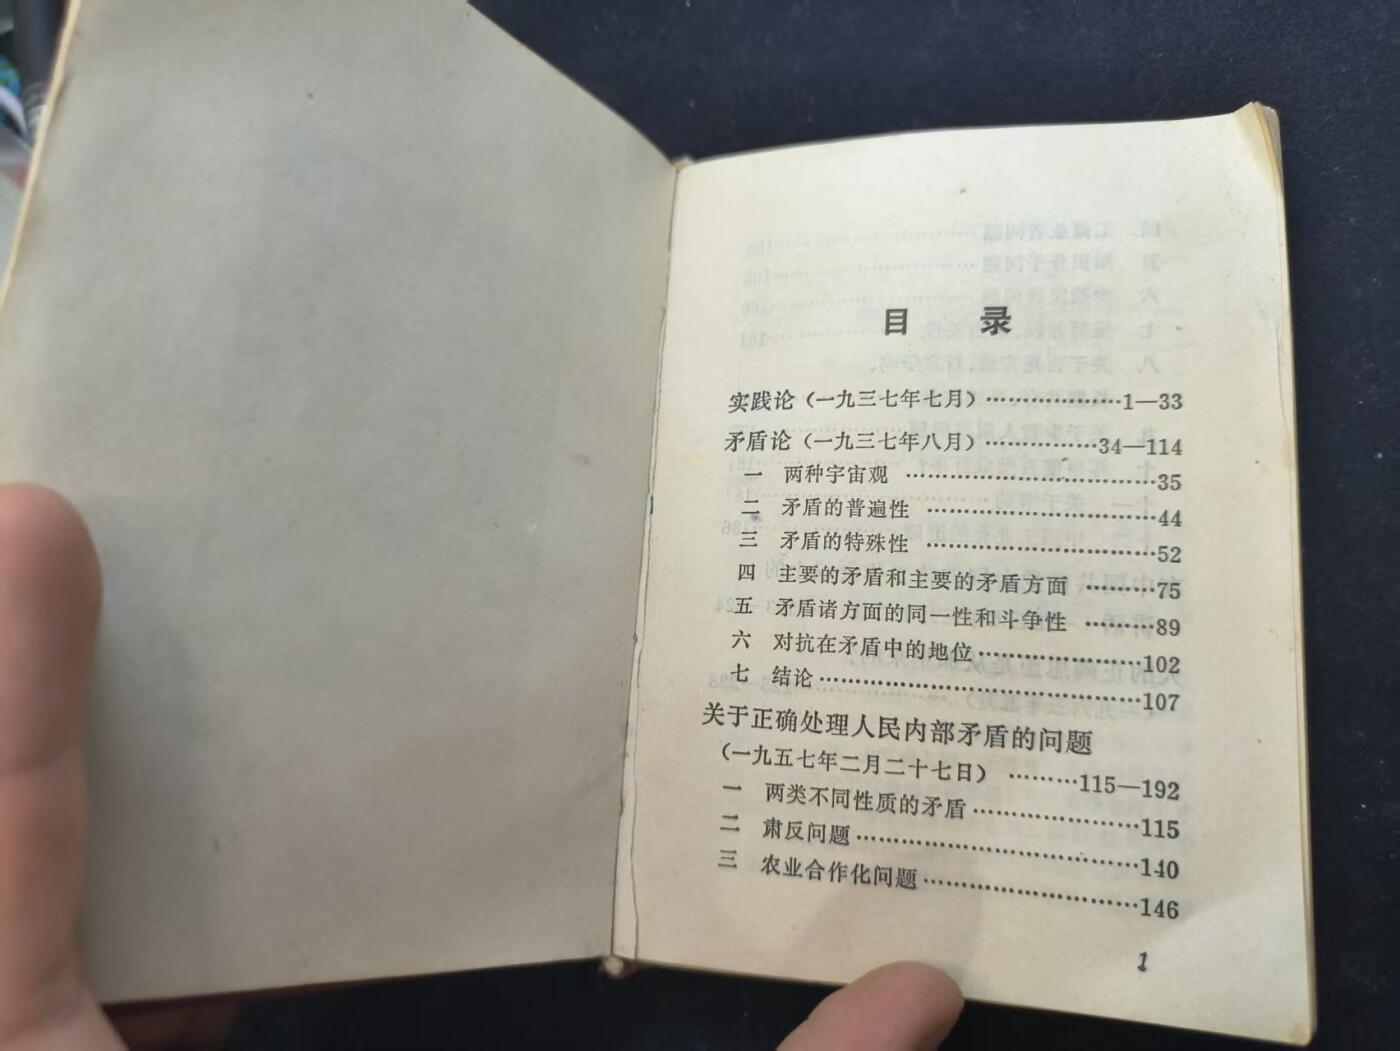 目 录
实践论（一九三七年七月）………………1—33
矛盾论（一九三七年八月）……………34—114
一 两种宇宙观 ………………………………35
二 矛盾的普遍性 ……………………………44
三 矛盾的特殊性 ……………………………52
四 主要的矛盾和主要的矛盾方面 ………75
五 矛盾诸方面的同一性和斗争性 ………89
六 对抗在矛盾中的地位……………………102
七 结论…………………………………………107
关于正确处理人民内部矛盾的问题
（一九五七年二月二十七日）………115—192
一 两类不同性质的矛盾……………………115
二 肃反问题……………………………………140
三 农业合作化问题…………………………146
1